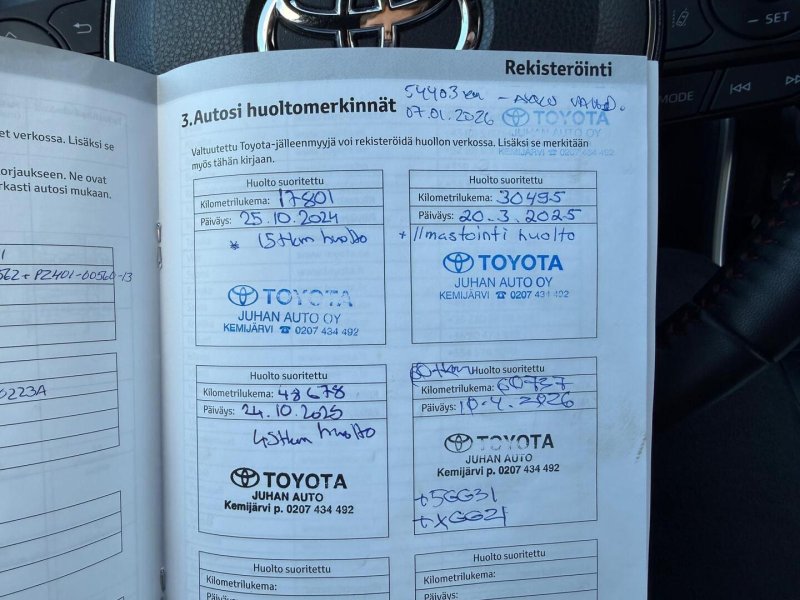 SET
MODE
et verkossa. Lisäksi se
orjaukseen. Ne ovat
rkasti autosi mukaan.
562 + PZ401-00560-13
0223A
Rekisteröinti
3.Autosi huoltomerkinnät
54403 km
07.01.2026
TOYOTA
JUHAN AUTO OY
KEMIJÄRVI ☎ 0207 434 492
Valtuutettu Toyota-jälleenmyyjä voi rekisteröidä huollon verkossa. Lisäksi se merkitään
myös tähän kirjaan.
Huolto suoritettu
Kilometrilukema: 17801
Päiväys: 25.10.2024
* 15tkm huolto
TOYOTA
JUHAN AUTO OY
KEMIJÄRVI ☎ 0207 434 492
Huolto suoritettu
Kilometrilukema: 30495
Päiväys: 20.3.2025
+ Ilmastointi huolto
TOYOTA
JUHAN AUTO OY
KEMIJÄRVI ☎ 0207 434 492
Huolto suoritettu
Kilometrilukema: 48678
Päiväys: 24.10.2025
45tkm huolto
TOYOTA
JUHAN AUTO
Kemijärvi p. 0207 434 492
60tkm Huolto suoritettu
Kilometrilukema: 60737
Päiväys: 10.4.2026
TOYOTA
JUHAN AUTO
Kemijärvi p. 0207 434 492
+5GG31
+XGG21
Huolto suoritettu
Kilometrilukema:
Päiväys:
Huolto suoritettu
Kilometrilukema:
Päiväys: